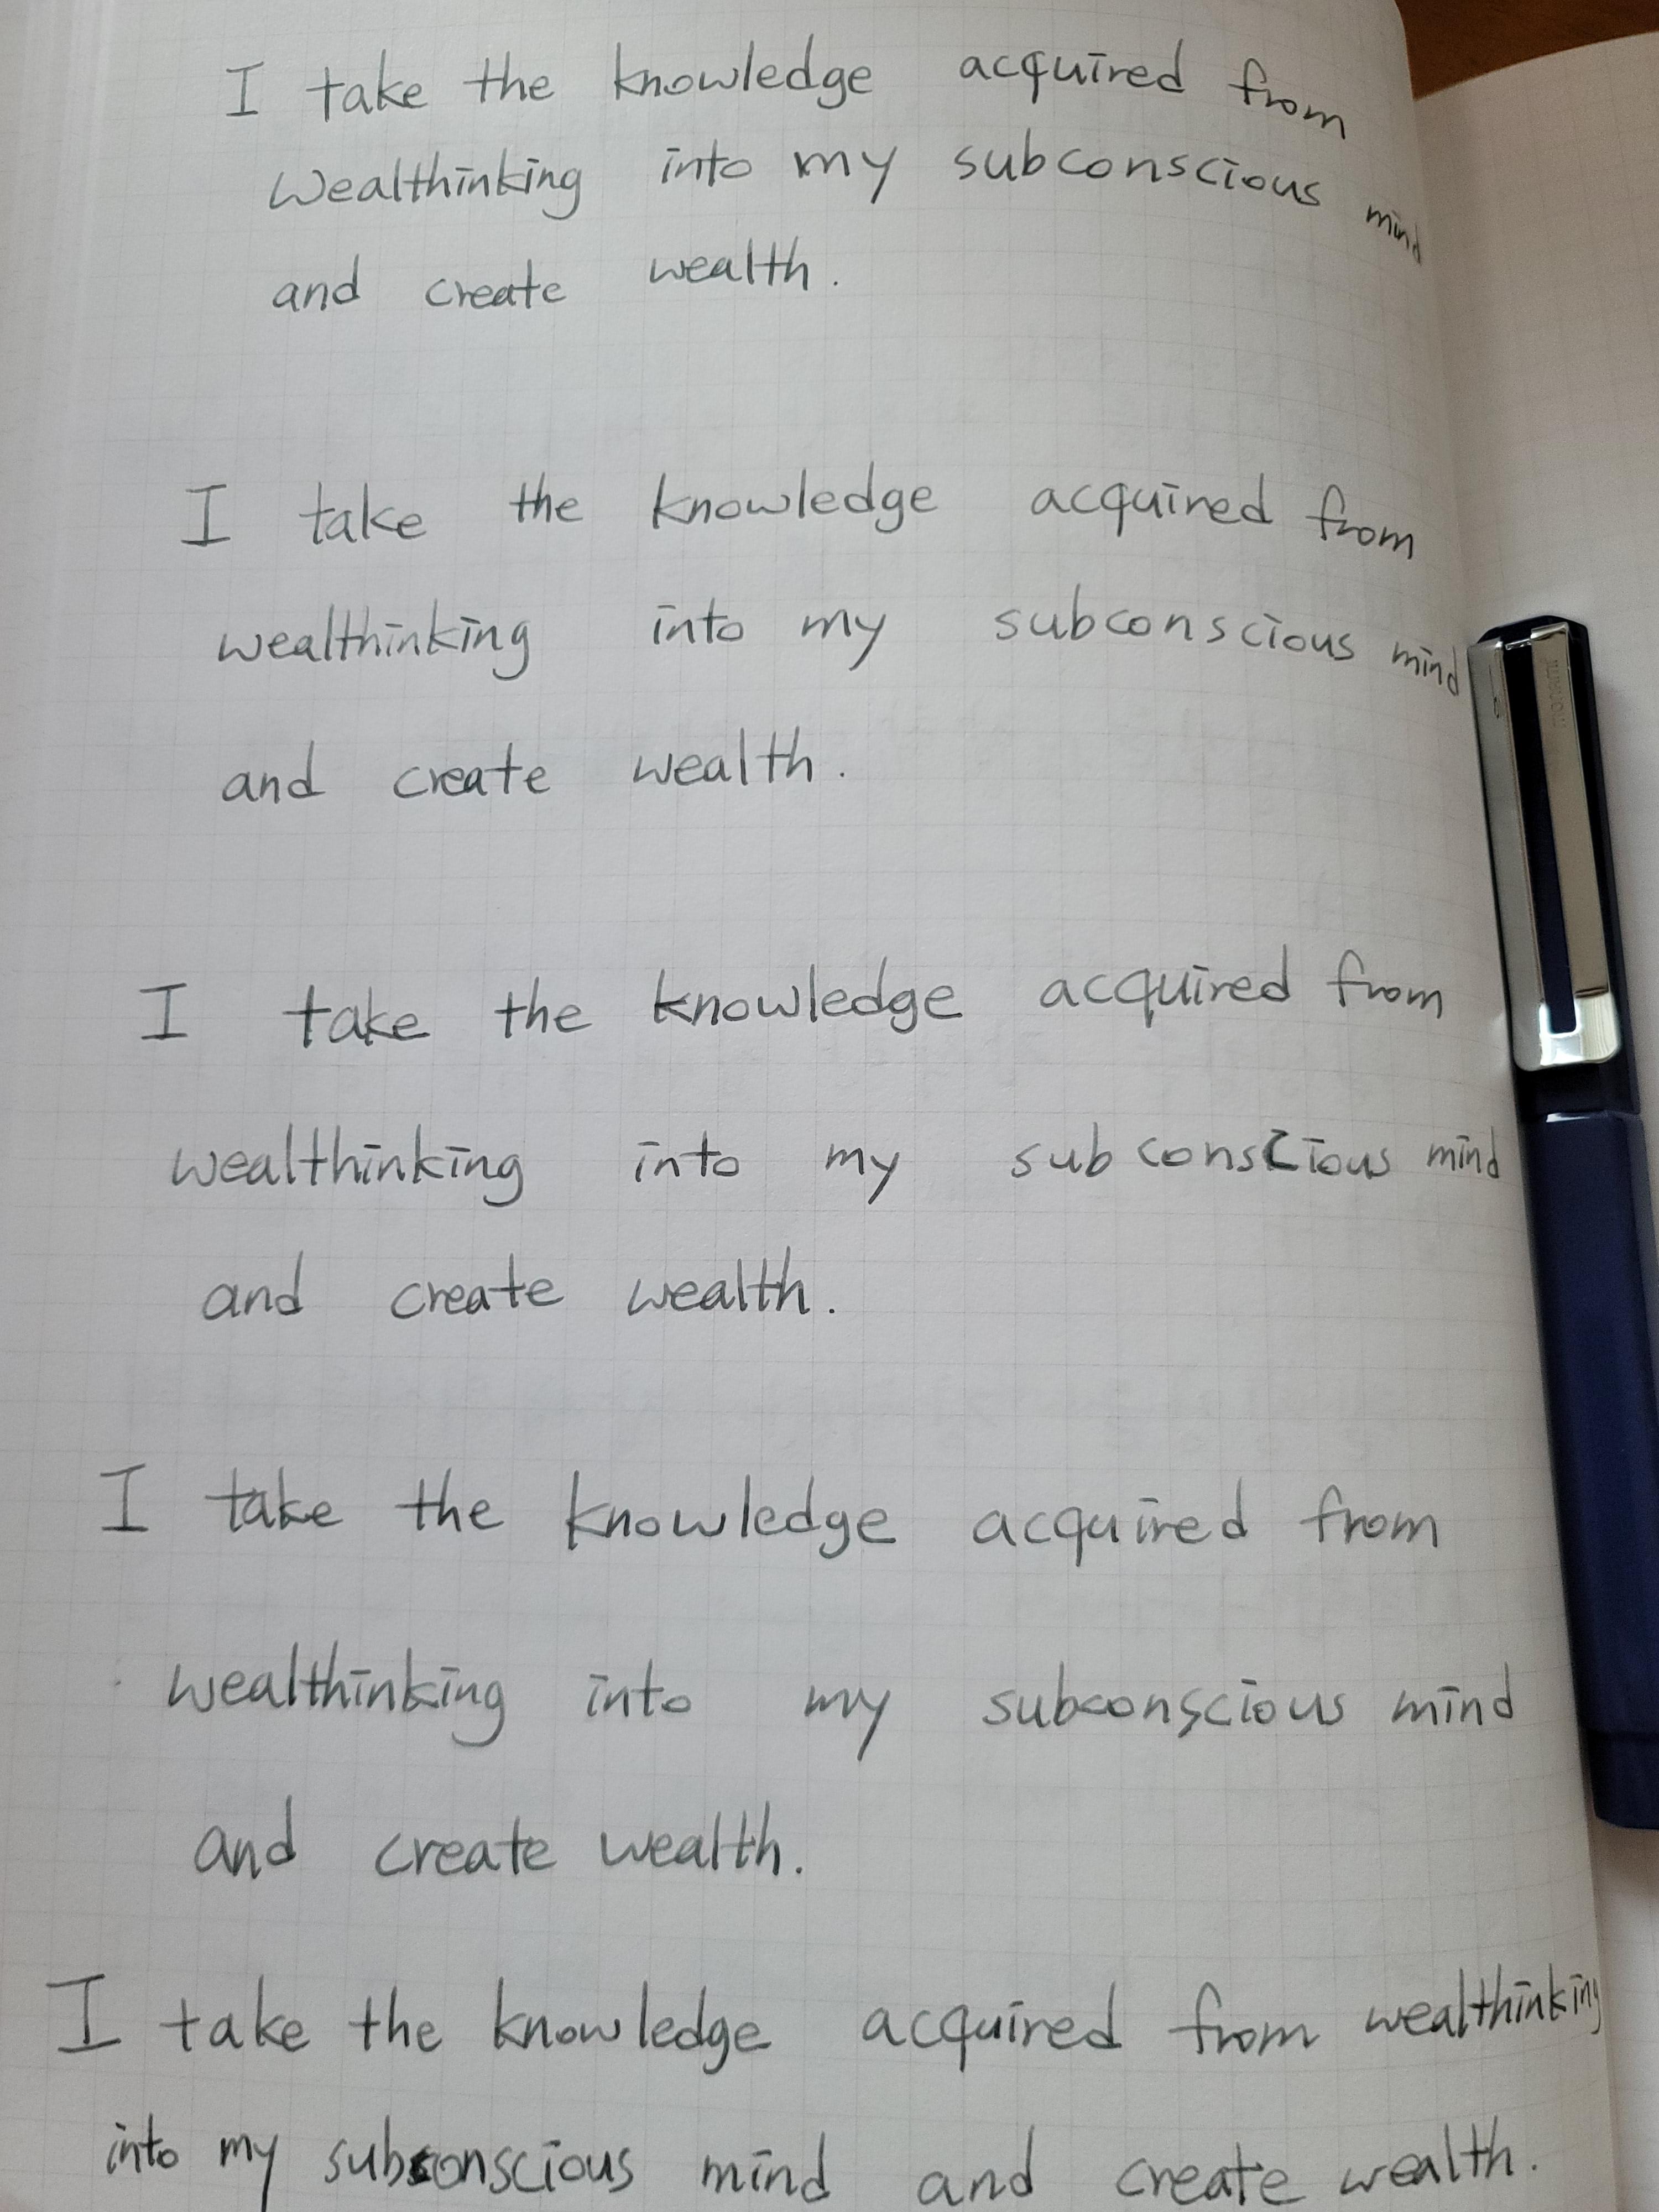 I take the knowledge acquired from
Wealthinking into my subconscious mind
and create wealth.
I take the knowledge acquired from
wealthinking into my subconscious mind
and create wealth.
I take the knowledge acquired from
wealthinking into my subconscious mind
and create wealth.
I take the knowledge acquired from
wealthinking into my subconscious mind
and create wealth.
I take the knowledge acquired from wealthinking
into my subconscious mind and create wealth.
monami